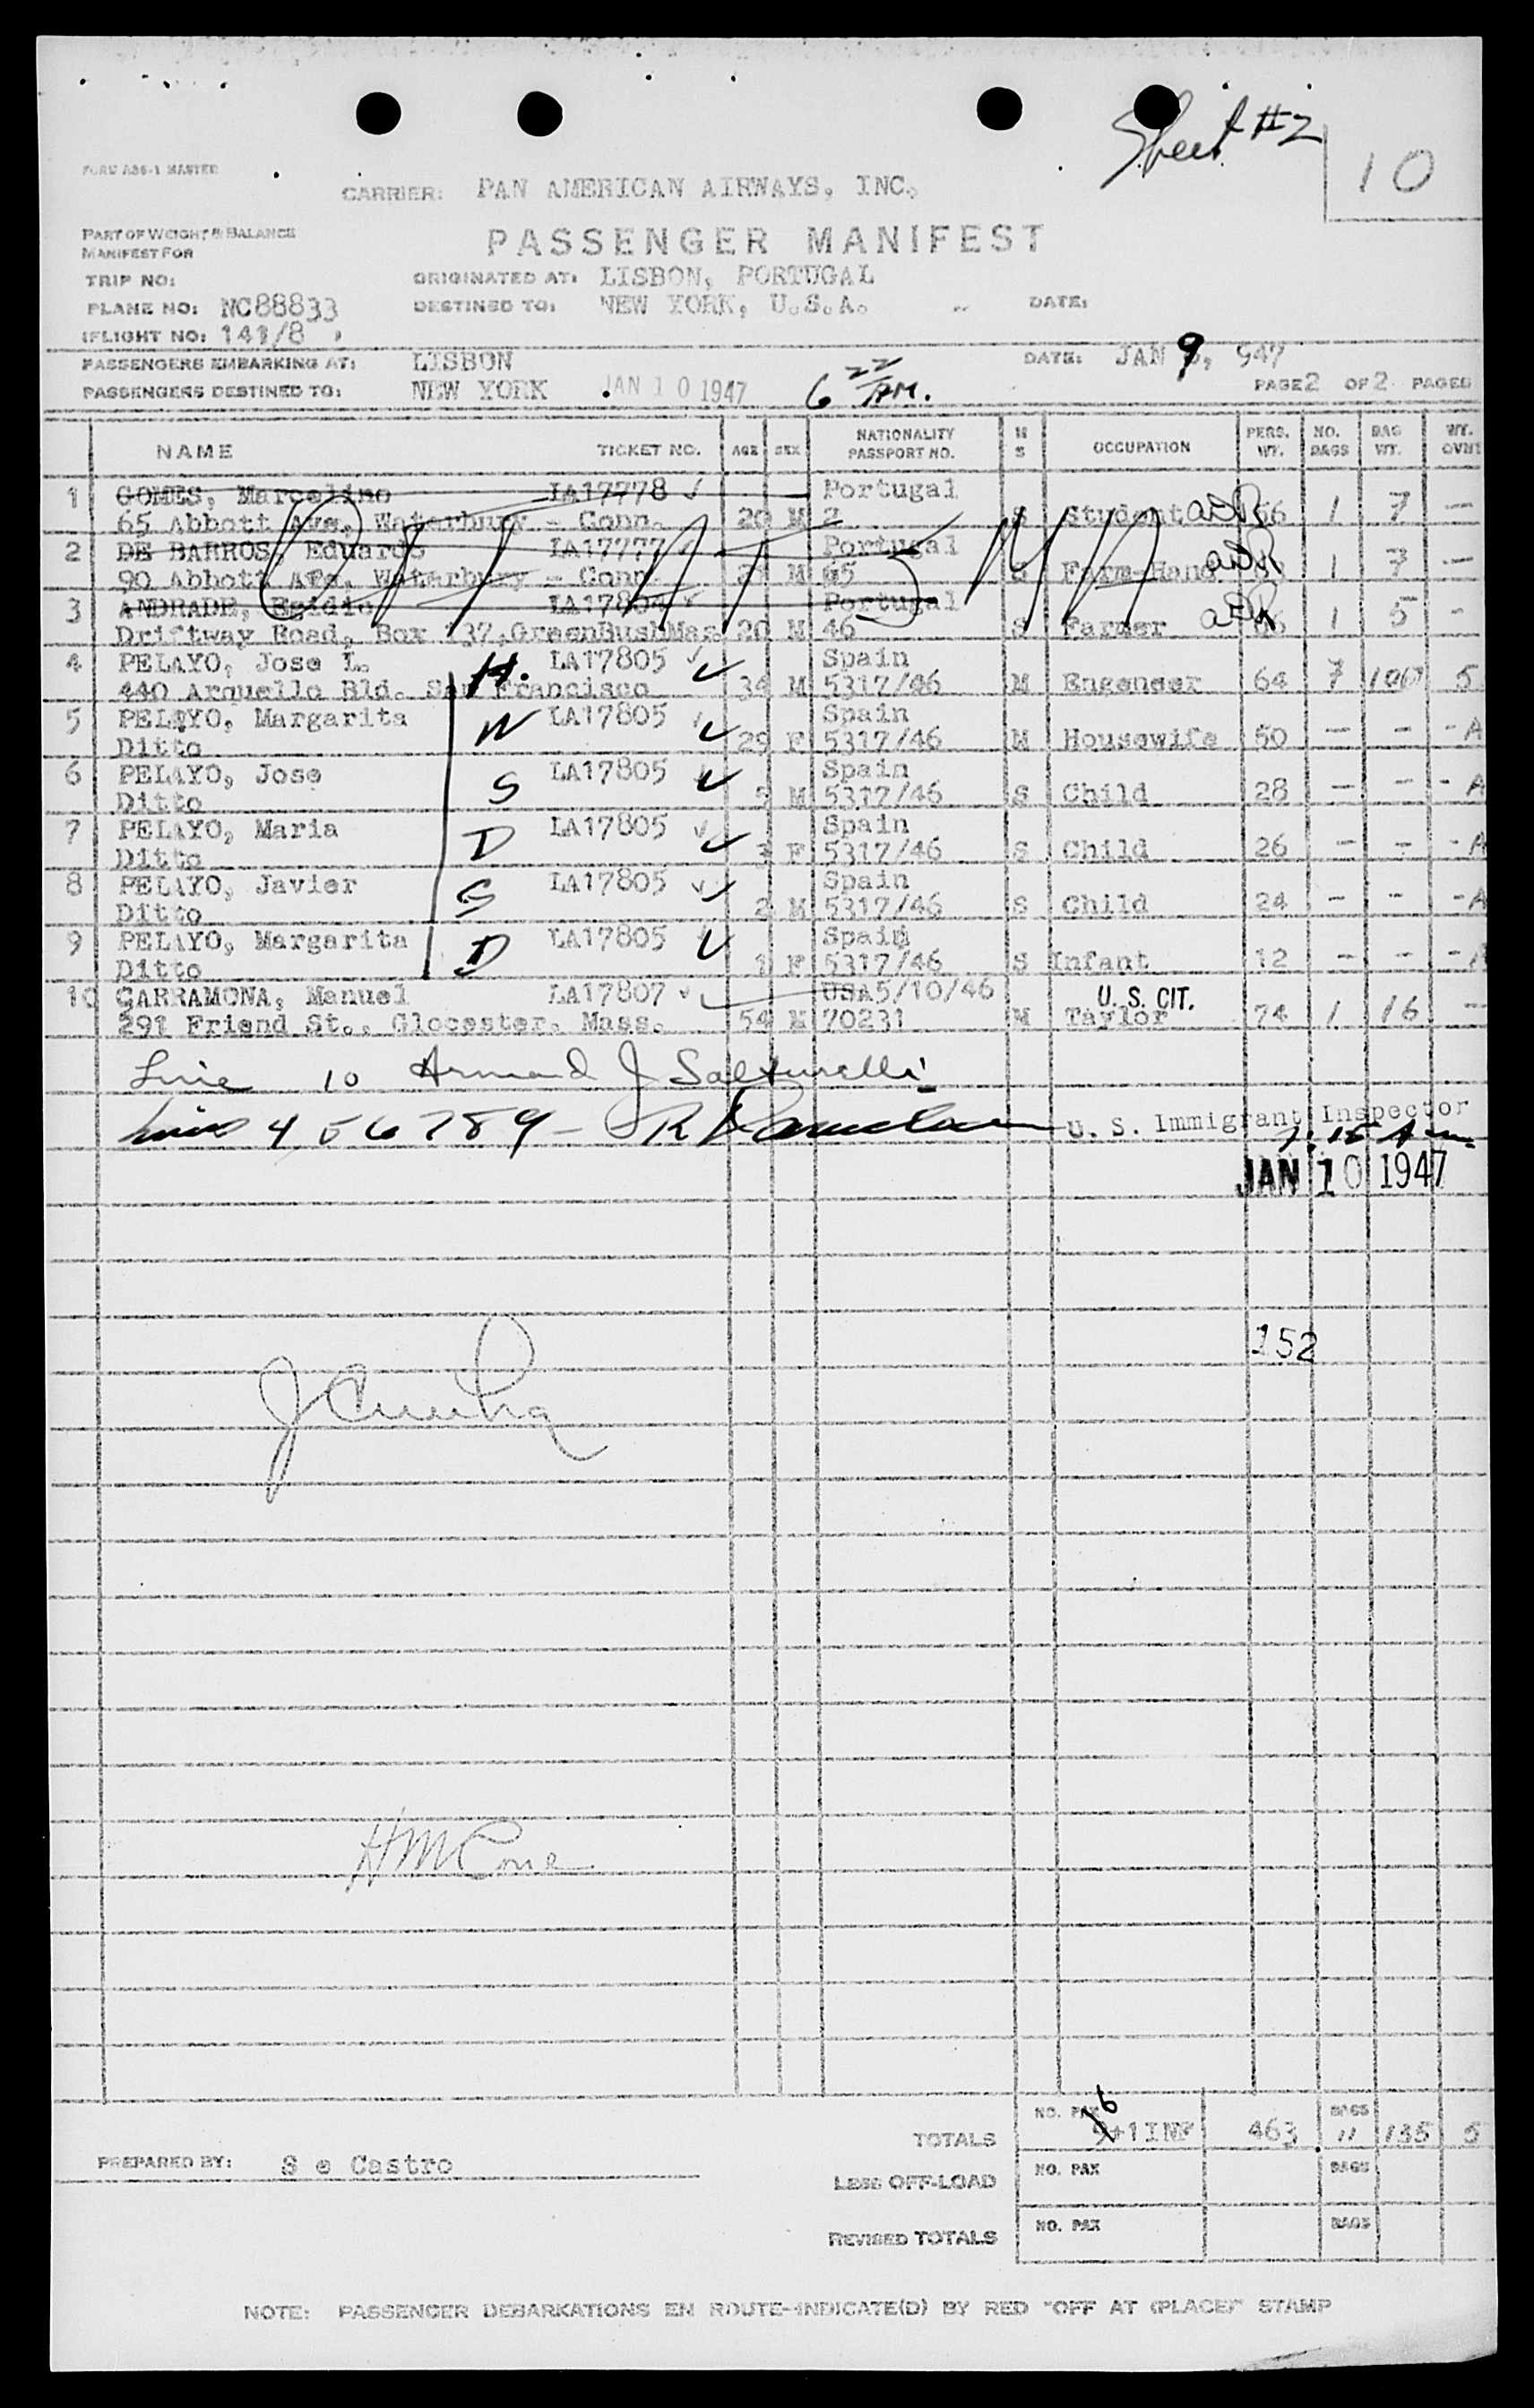 Sheet #2
10
FORM A86-1 MASTER
CARRIER: PAN AMERICAN AIRWAYS, INC.
PART OF WEIGHT & BALANCE
MANIFEST FOR
PASSENGER MANIFEST
TRIP NO:
ORIGINATED AT: LISBON, PORTUGAL
PLANE NO: NC88833
DESTINED TO: NEW YORK, U.S.A.
DATE:
FLIGHT NO: 141/8
PASSENGERS EMBARKING AT: LISBON
DATE: JAN 9, 947
PASSENGERS DESTINED TO: NEW YORK JAN 10 1947 6 22 AM.
PAGE 2 OF 2 PAGES
NAME TICKET NO. AGE SEX NATIONALITY PASSPORT NO. M S OCCUPATION PERS. WT. NO. BAGS BAG WT. WT. OVHT
1 GOMES, Marcelino LA17778 Portugal
65 Abbott Ave, Waterbury - Conn. 20 M 2 S Student 66 1 7 -
2 DE BARROS, Eduardo LA17777 Portugal
90 Abbott Ave, Waterbury - Conn M 65 Farm-Hand 1 7 -
3 ANDRADE, Egidio LA17804 Portugal
Driftway Road, Box 137, GreenBush Mas. 20 M 46 S Farmer 66 1 5 -
4 PELAYO, Jose L. H. LA17805 Spain
440 Arquello Bld. San Francisco 34 M 5317/46 M Engeneer 64 7 100 5
5 PELAYO, Margarita W LA17805 Spain
Ditto 29 F 5317/46 M Housewife 50 - - - A
6 PELAYO, Jose S LA17805 Spain
Ditto 5 M 5317/46 S Child 28 - - - A
7 PELAYO, Maria D LA17805 Spain
Ditto 3 F 5317/46 S Child 26 - - - A
8 PELAYO, Javier S LA17805 Spain
Ditto 2 M 5317/46 S Child 24 - - - A
9 PELAYO, Margarita D LA17805 Spain
Ditto 1 F 5317/46 S Infant 12 - - - A
10 GARRAMONA, Manuel LA17807 USA 5/10/46 U. S. CIT.
291 Friend St., Glocester, Mass. 54 M 70231 M Taylor 74 1 16 -
Line 10 Armand J
Lines 4 5 6 7 8 9 -
U. S. Immigrant Inspector
7.15 Am.
JAN 10 1947
152
J Cunha
H M Cone
TOTALS NO. PAX 9+1 INF 463 BAGS 11 135 5
PREPARED BY: S e Castro
LESS OFF-LOAD NO. PAX BAGS
REVISED TOTALS NO. PAX BAGS
NOTE: PASSENGER DEBARKATIONS EN ROUTE-INDICATE(D) BY RED "OFF AT (PLACE)" STAMP